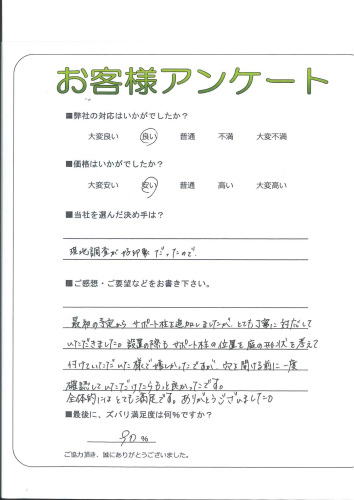 お客様アンケート
■弊社の対応はいかがでしたか？
大変良い 良い 普通 不満 大変不満
■価格はいかがでしたか？
大変安い 安い 普通 高い 大変高い
■当社を選んだ決め手は？
現地調査が好印象だったので。
■ご感想・ご要望などをお書き下さい。
最初の予定から サポート柱を追加しましたが、とても丁寧に対応して
いただきました。設置の際も サポート柱の位置を庭の形状を考えて
付けていただいた様で嬉しかったですが、穴を開ける前に一度
確認していただけたらもっと良かったです。
全体的には とても満足です。ありがとうございました。
■最後に、ズバリ満足度は何％ですか？
90 ％
ご協力頂き、誠にありがとうございました。